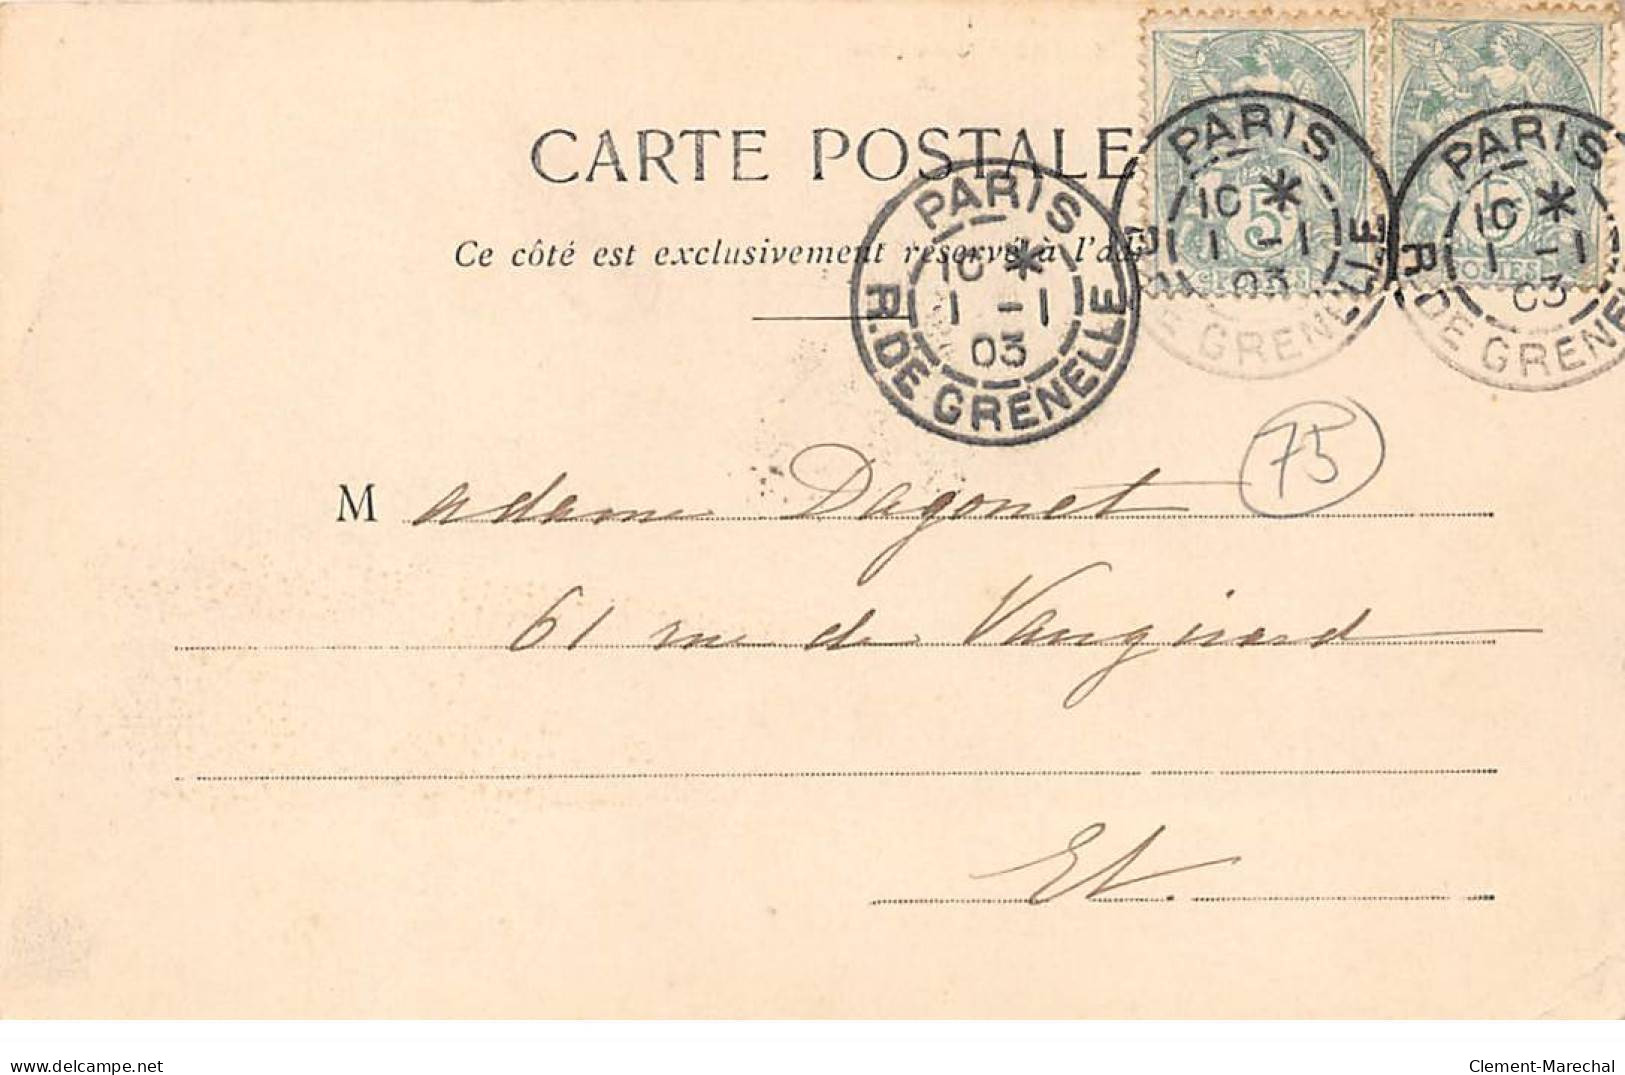 CARTE POSTALE
Ce côté est exclusivement réservé à l'ad
PARIS
10 *
1 - 1
03
R. DE GRENELLE
PARIS
10 *
1 - 1
03
DE GRENELLE
5
PARIS
10 *
1 - 1
03
R. DE GRENE
5
POSTES
75
Madame Dagonet
61 rue de Vaugirard
E.V.
delcampe.net
Clement-Marechal